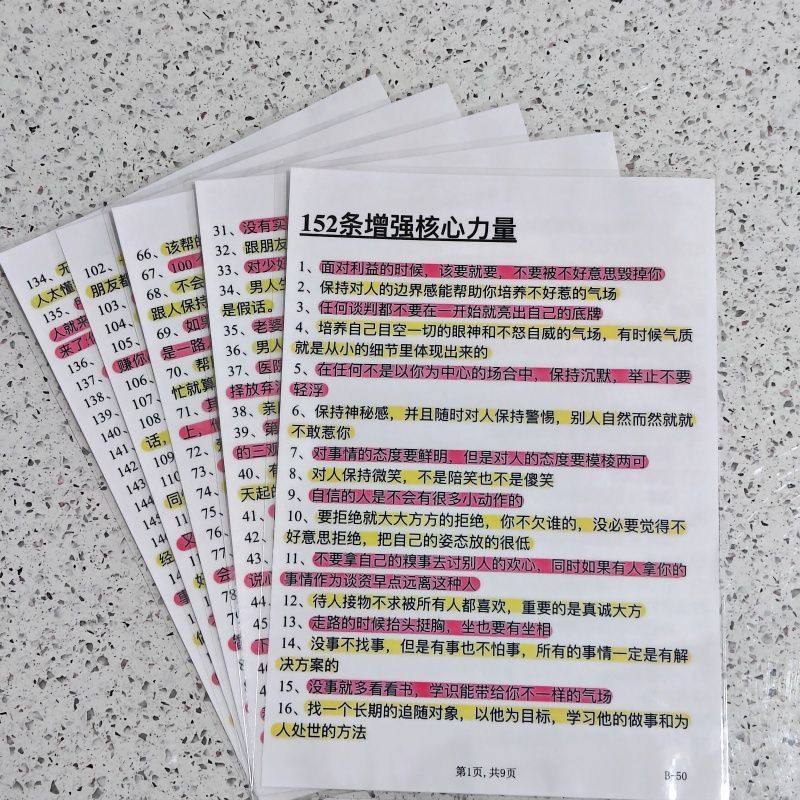 152条增强核心力量
1、面对利益的时候，该要就要，不要被不好意思毁掉你
2、保持对人的边界感能帮助你培养不好惹的气场
3、任何谈判都不要在一开始就亮出自己的底牌
4、培养自己目空一切的眼神和不怒自威的气场，有时候气质
就是从小的细节里体现出来的
5、在任何不是以你为中心的场合中，保持沉默，举止不要
轻浮
6、保持神秘感，并且随时对人保持警惕，别人自然而然就就
不敢惹你
7、对事情的态度要鲜明，但是对人的态度要模棱两可
8、对人保持微笑，不是陪笑也不是傻笑
9、自信的人是不会有很多小动作的
10、要拒绝就大大方方的拒绝，你不欠谁的，没必要觉得不
好意思拒绝，把自己的姿态放的很低
11、不要拿自己的糗事去讨别人的欢心，同时如果有人拿你的
事情作为谈资早点远离这种人
12、待人接物不求被所有人都喜欢，重要的是真诚大方
13、走路的时候抬头挺胸，坐也要有坐相
14、没事不找事，但是有事也不怕事，所有的事情一定是有解
决方案的
15、没事就多看看书，学识能带给你不一样的气场
16、找一个长期的追随对象，以他为目标，学习他的做事和为
人处世的方法
第1页，共9页
B-50
31、没有实
32、跟朋友
33、对少
34、男人生
是假话。
35、老婆
36、男人
37、医院
择放弃
38、亲
39、第
的三观
40、有
天起的
41、
42、
43、
说心
44、
45、
下
46
66、该帮的
67、100
68、不会
跟人保持
69、如果
是一路
70、帮
忙就算
71、其
上，
72、
73、
74、
75、
76、
77、
会
78
79
102、
朋友都
103、
104、
105、
赚你
106、
107、
108、
话，
109
110
同
134、无
人太懂
135、
人就来
来了
136、
137、
138、
139、
140、
141、
142
143
144
经